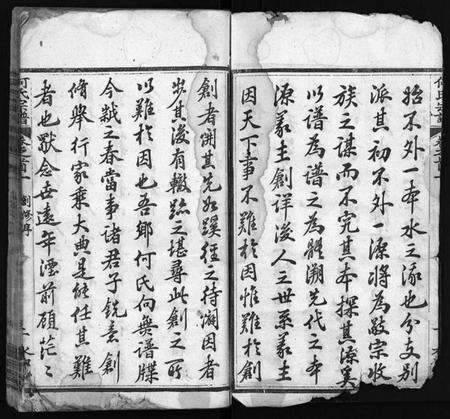 何氏宗譜
始不外一本水之流也分支別
派其初不外一源將為敬宗收
族之謀而不究其本探其源奚
以譜為譜之為體溯先代之本
源義主創詳後人之世系義主
因天下事不難於因惟難於創
創者開其先如蹊徑之待闢因者
步其後有轍跡之堪尋此創之所
以難於因也吾鄉何氏向無譜牒
今歲之春當事諸君子銳意創
脩舉行家乘大典是能任其難
者也念世遠年湮前顧茫〻
何氏宗譜 卷之首